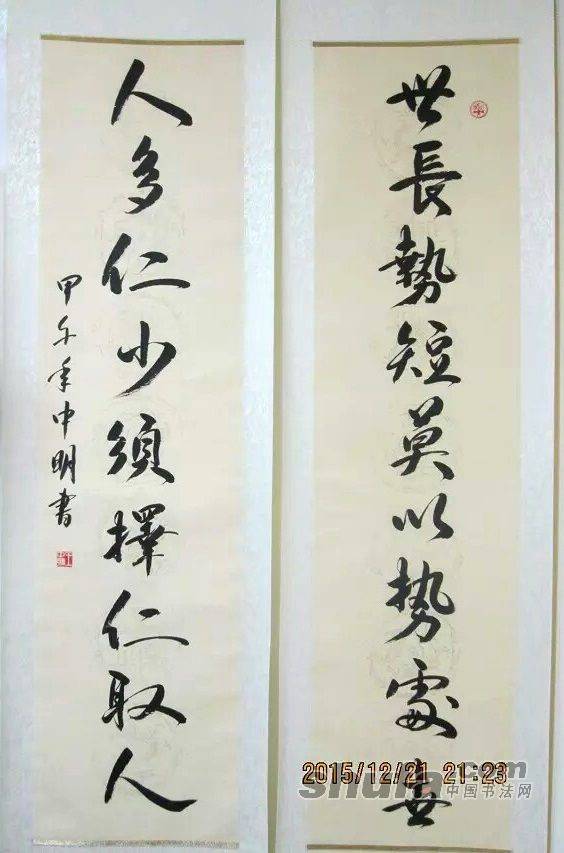 世長勢短莫以势處世
人多仁少須擇仁取人
甲午年中明書
2015/12/21 21:23
shufa.com
中国书法网